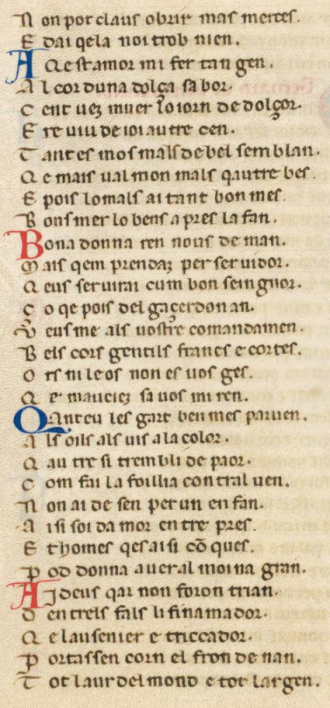 N on pot claus obrir mas merces.
E dai qela noi trob nien.
A Qest amor mi fer tan gen.
A l cor duna dolça sabor.
C ent uez muer lo iorn de dolçor.
E re uiu de ioi autre cen.
T ant es mos mals de bel semblan.
Q e mais ual mon mals qautre bes.
E pois lo mals ai tant bon mes.
B ons mer lo bens apres la fan.
B ona donna ren nous deman.
M ais qem prendaz per seruidor.
Q eus seruirai cum bon seingnor.
C o qe pois del gacerdon an.
V eus me als uostre comandamen.
B els cors gentils francs e cortes.
O rs ni leos non es uos ges.
Q e mauciez sa uos mi ren.
Q Ant eu les gart ben mes paruen.
A ls oils als uis a la color.
Q autresi trembli de paor.
C om fai la foillia contral uen.
N on ai de sen per un enfan.
A isi soi damor entrepres.
E t homes qes aisi cõqes.
P od donna auer almoina gran.
A J deus qar non foron trian.
D entrels fals li fin amador.
Q e lausenier e triccador.
P ortassen corn el fron denan.
T ot laur del mond e tot largen.